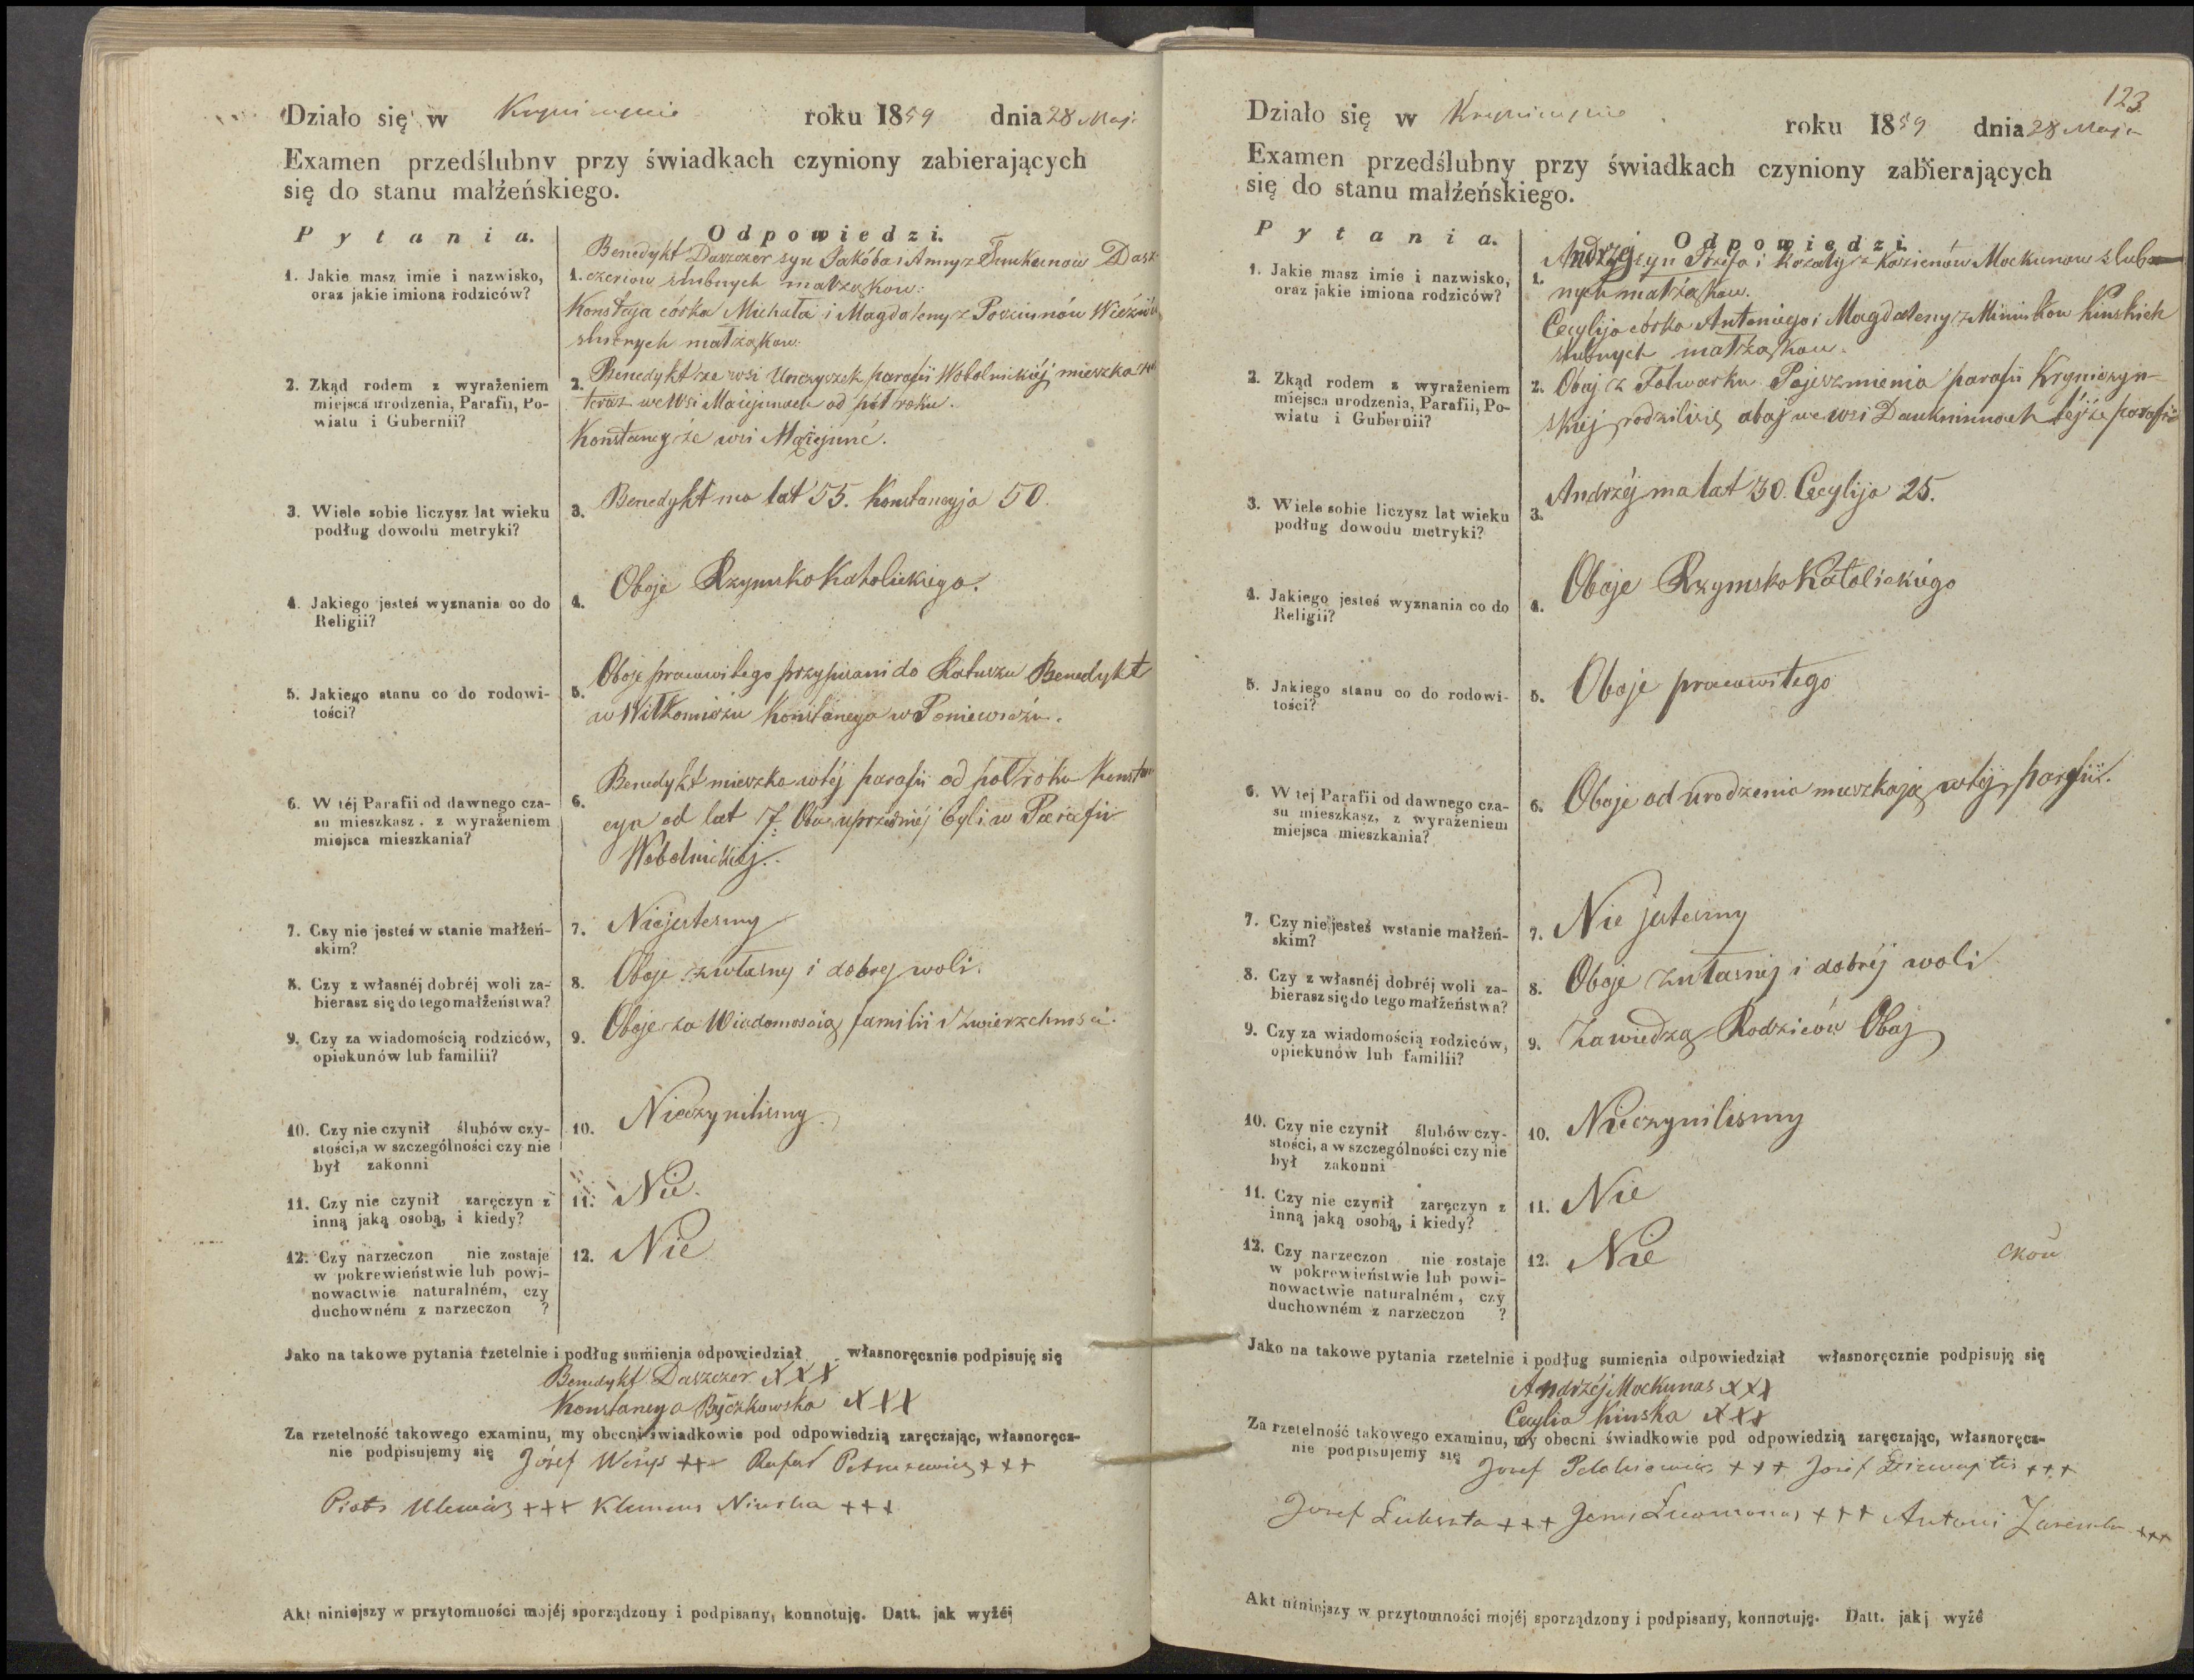 Działo się w roku 1859 dnia 28 Maja
Examen przedślubny przy świadkach czyniony zabierających
się do stanu małżeńskiego.
Pytania.
Odpowiedzi.
1. Jakie masz imie i nazwisko,
oraz jakie imiona rodziców?
1. Benedykt Daszczor syn Jakóba i Anny z Dasz-
czoriow slubnych małżąkow.
córka Michała i Magdaleny z
slubnych małżąkow.
2. Zkąd rodem z wyrażeniem
miejsca urodzenia, Parafii, Po-
wiatu i Gubernii?
2. Benedykt ze wsi parafii Wobolnickiéj mieszka
teraz we Wsi Maiejunach od pół roku.
ze wsi
3. Wiele sobie liczysz lat wieku
podług dowodu metryki?
3. Benedykt ma lat 55. Konstancyja 50.
4. Jakiego jesteś wyznania co do
Religii?
4. Oboje Rzymsko Katolickiego.
5. Jakiego stanu co do rodowi-
tości?
5. Oboje pracowitego przypisani do Ratuszu Benedykt
w Wiłkomiżu Konstancya w Poniewieżu.
6. W téj Parafii od dawnego cza-
su mieszkasz, z wyrażeniem
miejsca mieszkania?
6. Benedykt mieszka wtéj parafii od pół roku Konstan
cya od lat 7. uprzedniéj byli w Parafii
Wobolnickiéj.
7. Czy nie jesteś w stanie małżeń-
skim?
7. Niejestesmy
8. Czy z własnéj dobréj woli za-
bierasz się do tego małżeństwa?
8. Oboje z własnej i dobrej woli.
9. Czy za wiadomością rodziców,
opiekunów lub familii?
9. Oboje za Wiadomoscią familii i Zwierzchnosci.
10. Czy nie czynił ślubów czy-
stości, a w szczególności czy nie
był zakonni
10. Nieczynilismy.
11. Czy nie czynił zaręczyn z
inną jaką osobą, i kiedy?
11. Nie.
12. Czy narzeczon nie zostaje
w pokrewieństwie lub powi-
nowactwie naturalném, czy
duchowném z narzeczon ?
12. Nie
Jako na takowe pytania rzetelnie i podług sumienia odpowiedział własnoręcznie podpisuję się
Benedykt Daszczor XXX
Konstancya Byczkowska XXX
Za rzetelność takowego examinu, my obecni świadkowie pod odpowiedzią zaręczając, własnoręcz-
nie podpisujemy się Józef ++ Rafał +++
Piotr Ulewicz +++ Klemens +++
Akt niniejszy w przytomności mojéj sporządzony i podpisany, konnotuję. Datt. jak wyżéj
123
Działo się w roku 1859 dnia 28 Maja
Examen przedślubny przy świadkach czyniony zabierających
się do stanu małżeńskiego.
Pytania.
Odpowiedzi
1. Jakie masz imie i nazwisko,
oraz jakie imiona rodziców?
1. Andrzej syn Józefa i Rozalyi z Mockunow slub
nych małżąkow.
Cecylija córka Antoniego i Magdaleny z Kinskich
slubnych małżąkow.
2. Zkąd rodem z wyrażeniem
miejsca urodzenia, Parafii, Po-
wiatu i Gubernii?
2. Obaj z Folwarku Pojeszmienia parafii Kryniczyn-
skiéj rodzilisię obaj we wsi téjże parafii
3. Wiele sobie liczysz lat wieku
podług dowodu metryki?
3. Andrzéj ma lat 30. Cecylija 25.
4. Jakiego jesteś wyznania co do
Religii?
4. Oboje Rzymsko Katolickiego
5. Jakiego stanu co do rodowi-
tości?
5. Oboje pracowitego
6. W tej Parafii od dawnego cza-
su mieszkasz, z wyrażeniem
miejsca mieszkania?
6. Oboje od urodzenia mieszkają wtéj parafii.
7. Czy nie jesteś wstanie małżeń-
skim?
7. Nie jestesmy
8. Czy z własnéj dobréj woli za-
bierasz się do tego małżeństwa?
8. Oboje z własnéj i dobréj woli
9. Czy za wiadomością rodziców,
opiekunów lub familii?
9. Zawiedzą Rodziców Obaj
10. Czy nie czynił ślubów czy-
stości, a w szczególności czy nie
był zakonni
10. Nieczynilismy
11. Czy nie czynił zaręczyn z
inną jaką osobą, i kiedy?
11. Nie
12. Czy narzeczon nie zostaje
w pokrewieństwie lub powi-
nowactwie naturalném, czy
duchowném z narzeczon ?
12. Nie
Jako na takowe pytania rzetelnie i podług sumienia odpowiedział własnoręcznie podpisuję się
Andrzéj Mockunas XXX
Cecylia Kinska XXX
Za rzetelność takowego examinu, my obecni świadkowie pod odpowiedzią zaręczając, własnoręcz-
nie podpisujemy się Jozef +++ Jozef +++
Jozef +++ +++ Antoni Zaremba +++
Akt niniejszy w przytomności mojéj sporządzony i podpisany, konnotuję. Datt. jakj wyżé